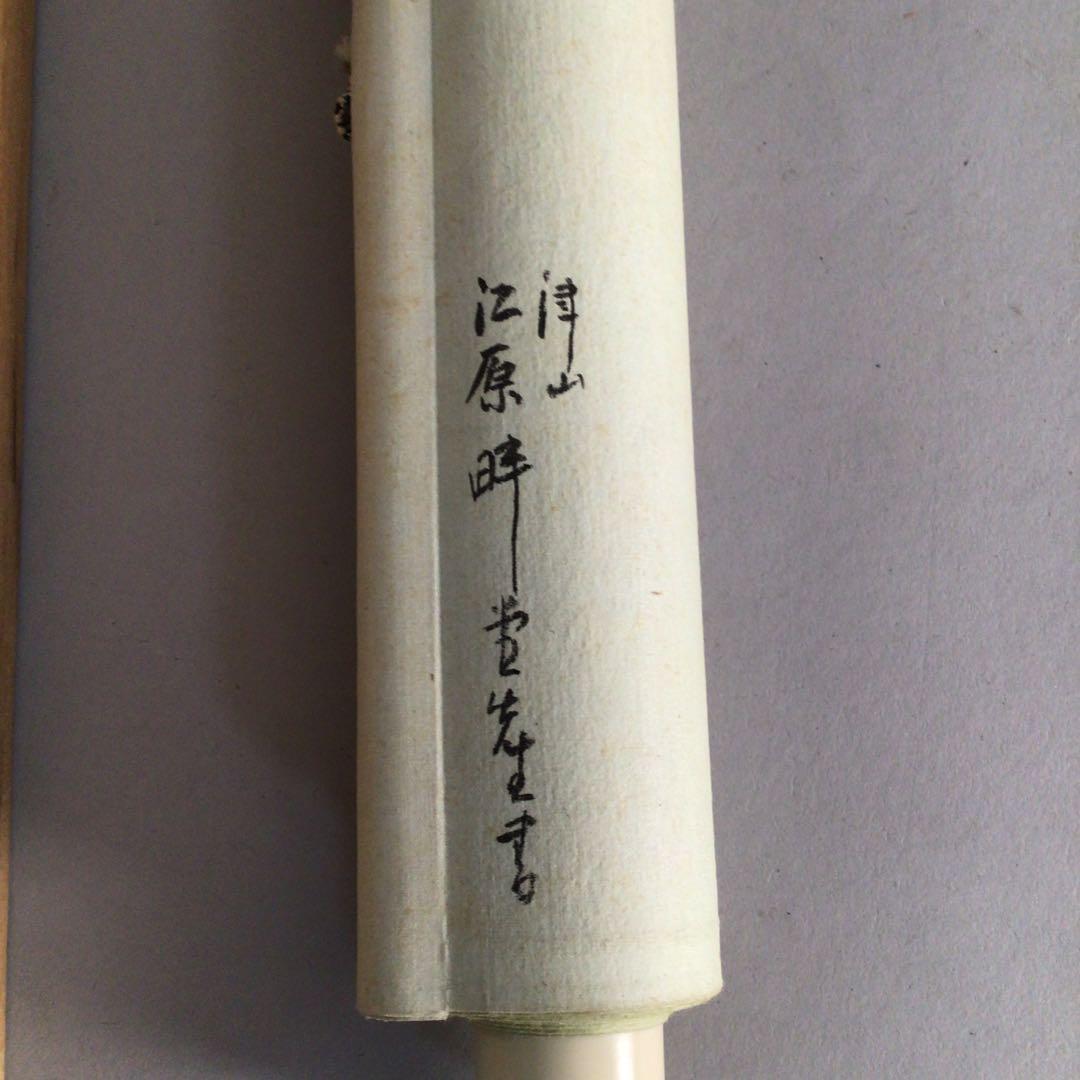 津山
江原畔堂先生書